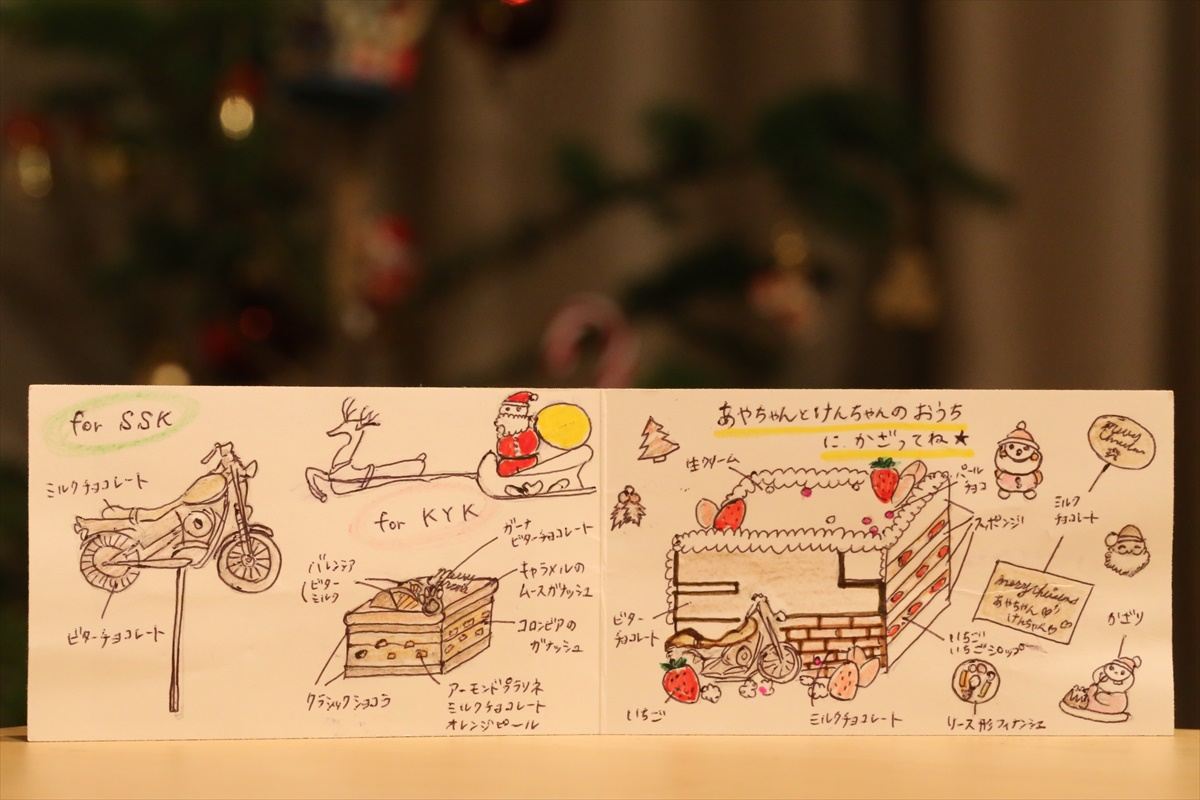 for SSK
ミルクチョコレート
ビターチョコレート
for KYK
ガーナ
ビターチョコレート
バレンシア
ビター
ミルク
キャラメルの
ムースガナッシュ
コロンビアの
ガナッシュ
クラシックショコラ
アーモンドプラリネ
ミルクチョコレート
オレンジピール
あやちゃんとけんちゃんの おうち
に かざってね★
生クリーム
パール
チョコ
スポンジ
ミルク
チョコレート
merry
merry christmas
あやちゃん♡
けんちゃん♡
かざり
ビター
チョコレート
いちご
いちごシロップ
いちご
ミルクチョコレート
リース形フィナンシェ